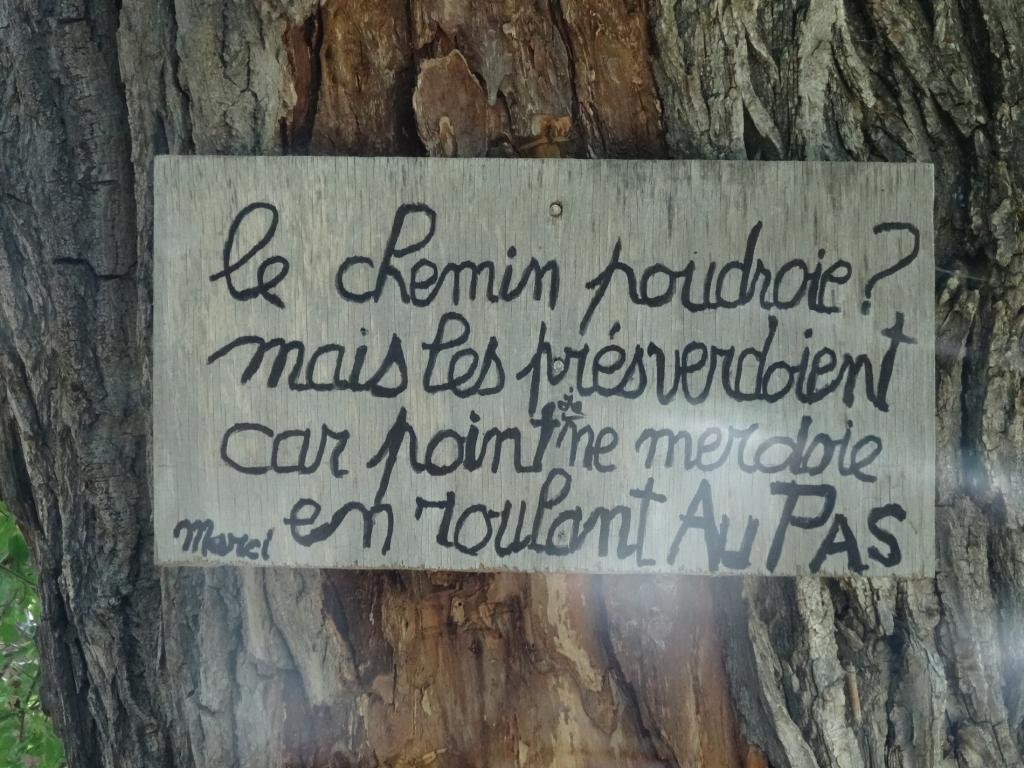 le chemin poudroie?
mais les prés verdoient
car point je ne merdoie
en roulant AU PAS
Merci